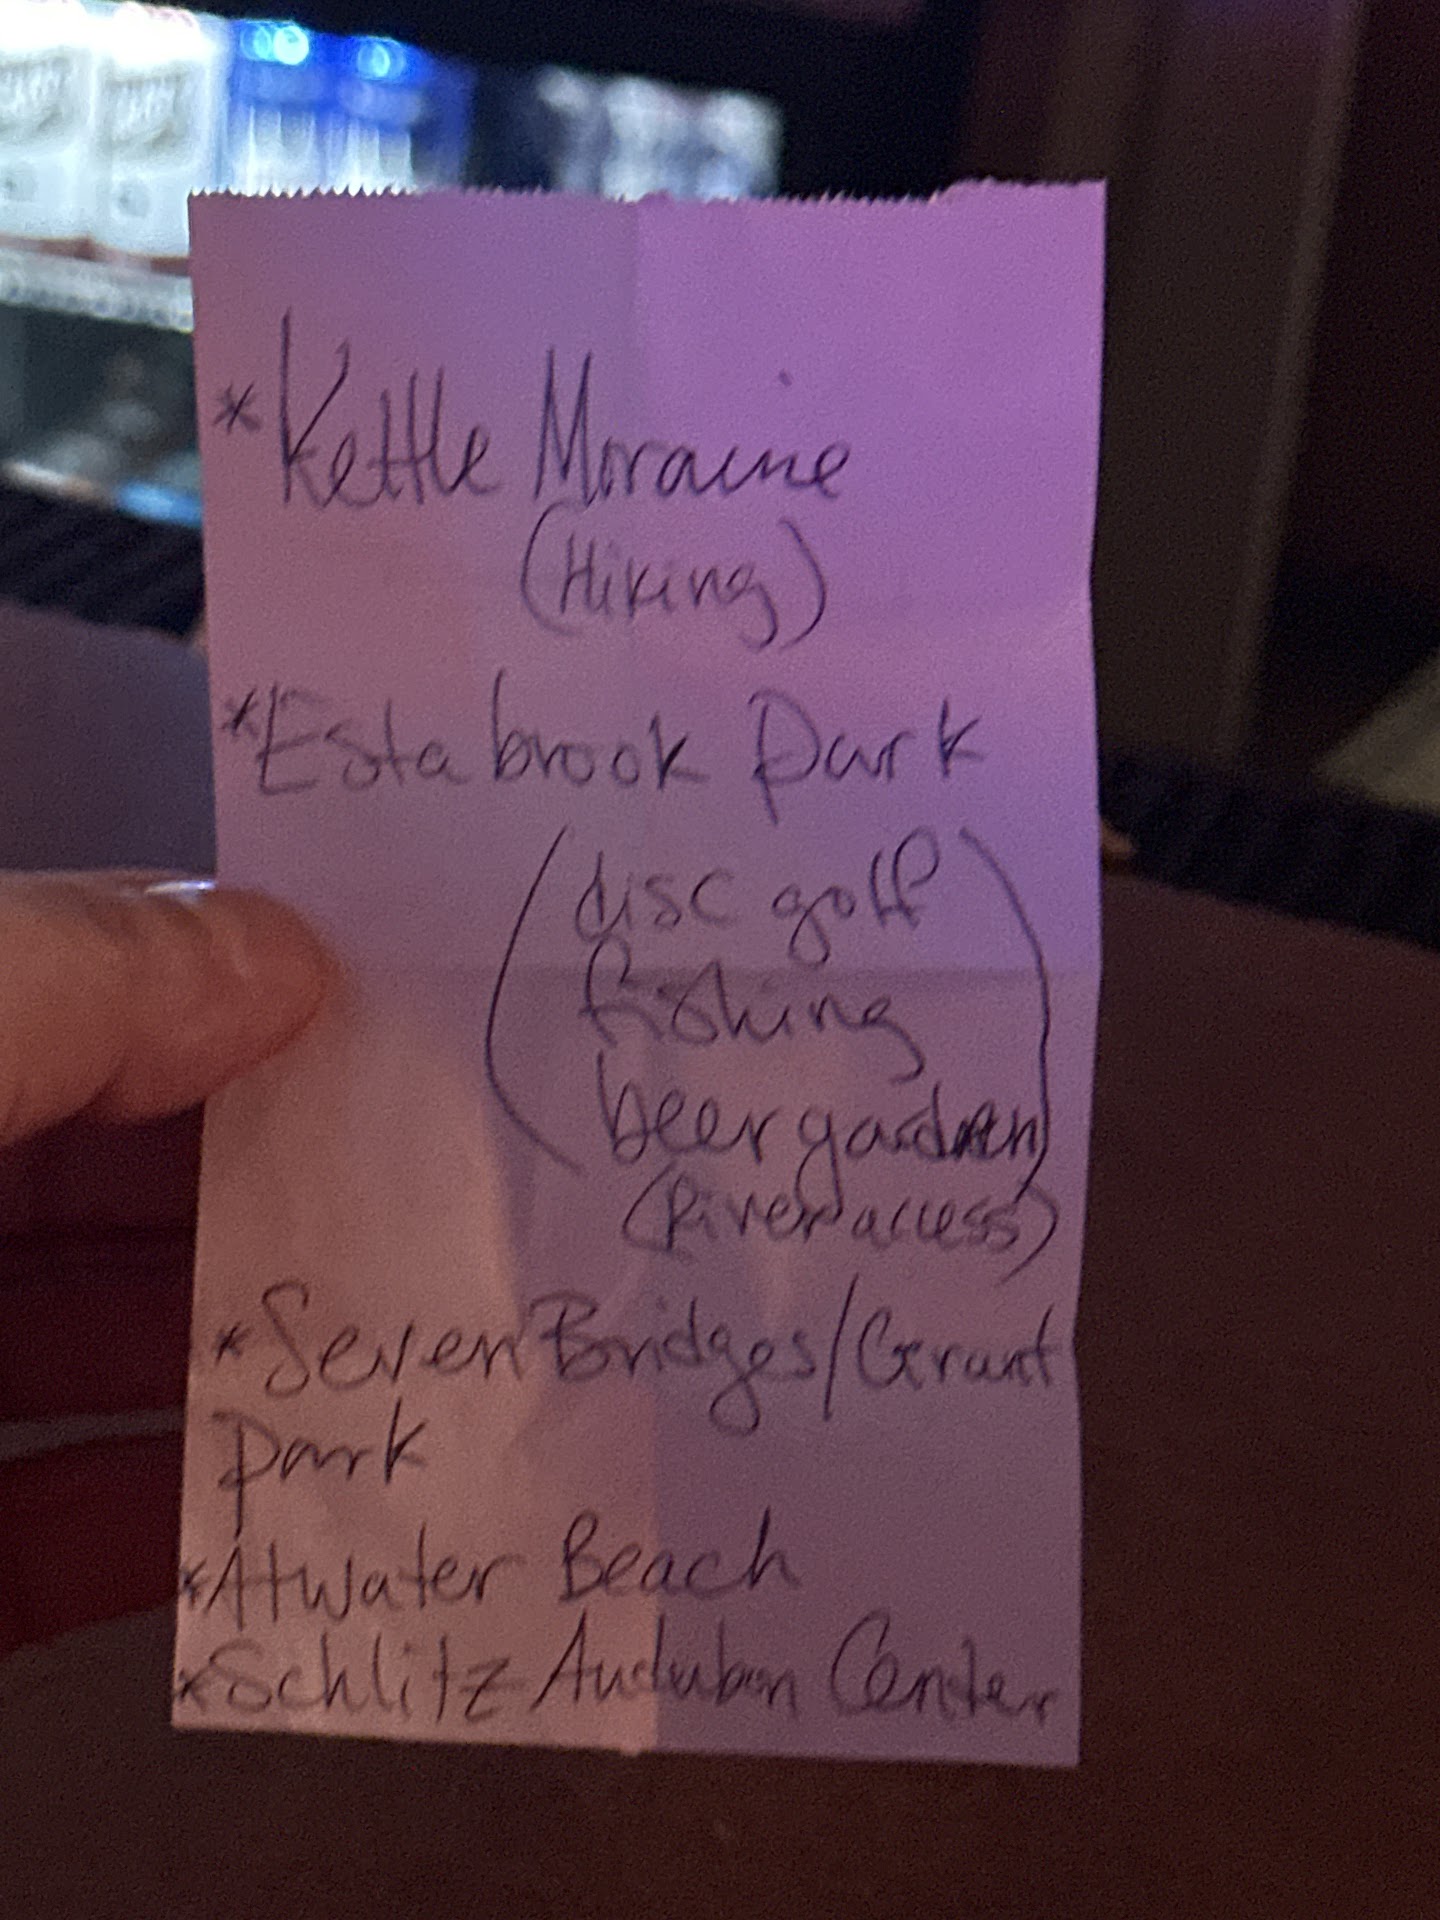 *Kettle Moraine
(Hiking)
*Estabrook Park
(disc golf
fishing
beer garden)
(River access)
*Seven Bridges/Grant
Park
*Atwater Beach
*Schlitz Audubon Center